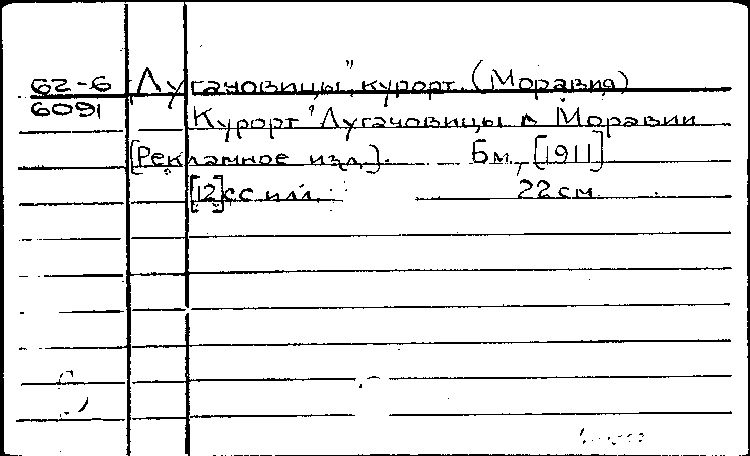 62-6 Лугачовицы", курорт (Моравия)
6091 Курорт "Лугачовицы в Моравии
[Рекламное изд.]. Б.м., [1911]
[12] сс илл. 22 см.